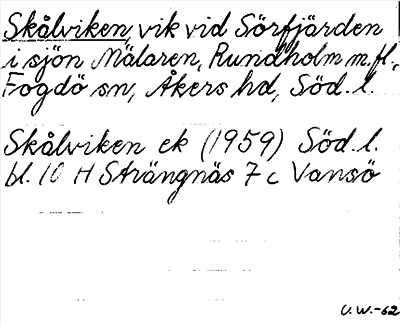 Skålviken, vik vid Sörfjärden
i sjön Mälaren, Rundholm m.fl.,
Fogdö sn, Åkers hd, Söd. l.
Skålviken ek (1959) Söd. l.
bl. 10 H Strängnäs 7 c Vansö
U.W.-62